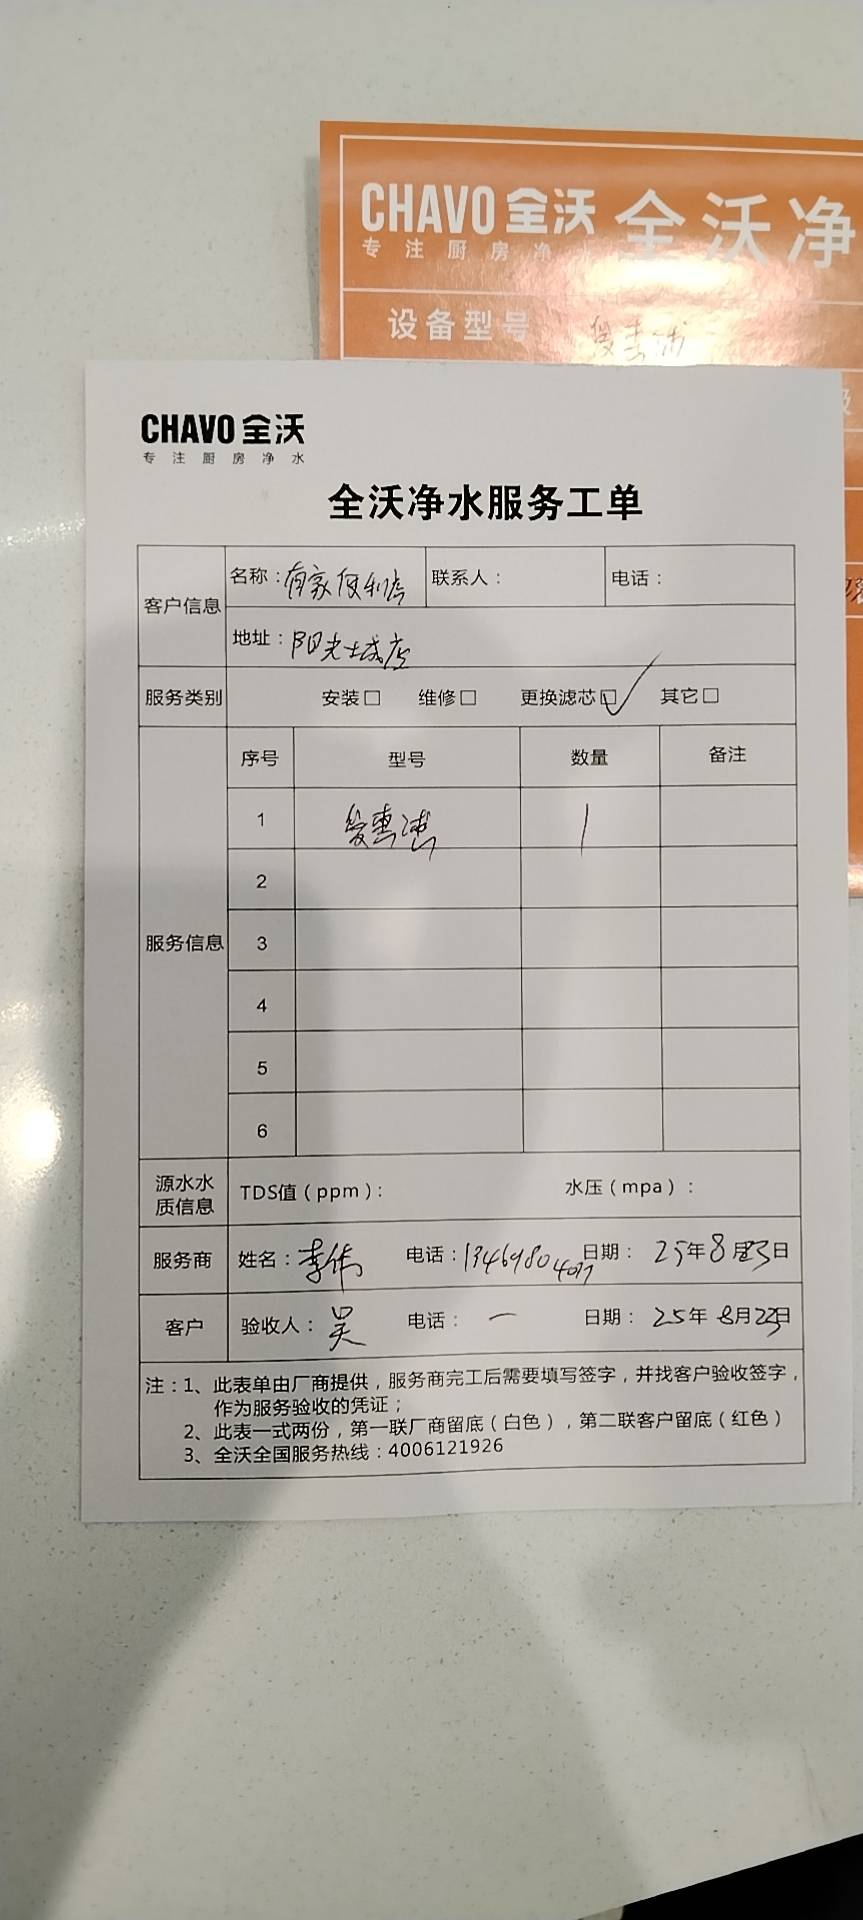 CHAVO 全沃 全沃净
专注厨房净
设备型号 爱惠浦
级
CHAVO 全沃
专注厨房净水
全沃净水服务工单
客户信息 名称：有家便利店 联系人： 电话：
地址：阳光城店
服务类别 安装□ 维修□ 更换滤芯☑ 其它□
服务信息 序号 型号 数量 备注
1 爱惠浦 1
2
3
4
5
6
源水水质信息 TDS值（ppm）： 水压（mpa）：
服务商 姓名：李伟 电话：1346980 日期：25年8月23日
客户 验收人：吴 电话：一 日期：25年8月23日
注：1、此表单由厂商提供，服务商完工后需要填写签字，并找客户验收签字，
作为服务验收的凭证；
2、此表一式两份，第一联厂商留底（白色），第二联客户留底（红色）
3、全沃全国服务热线：4006121926